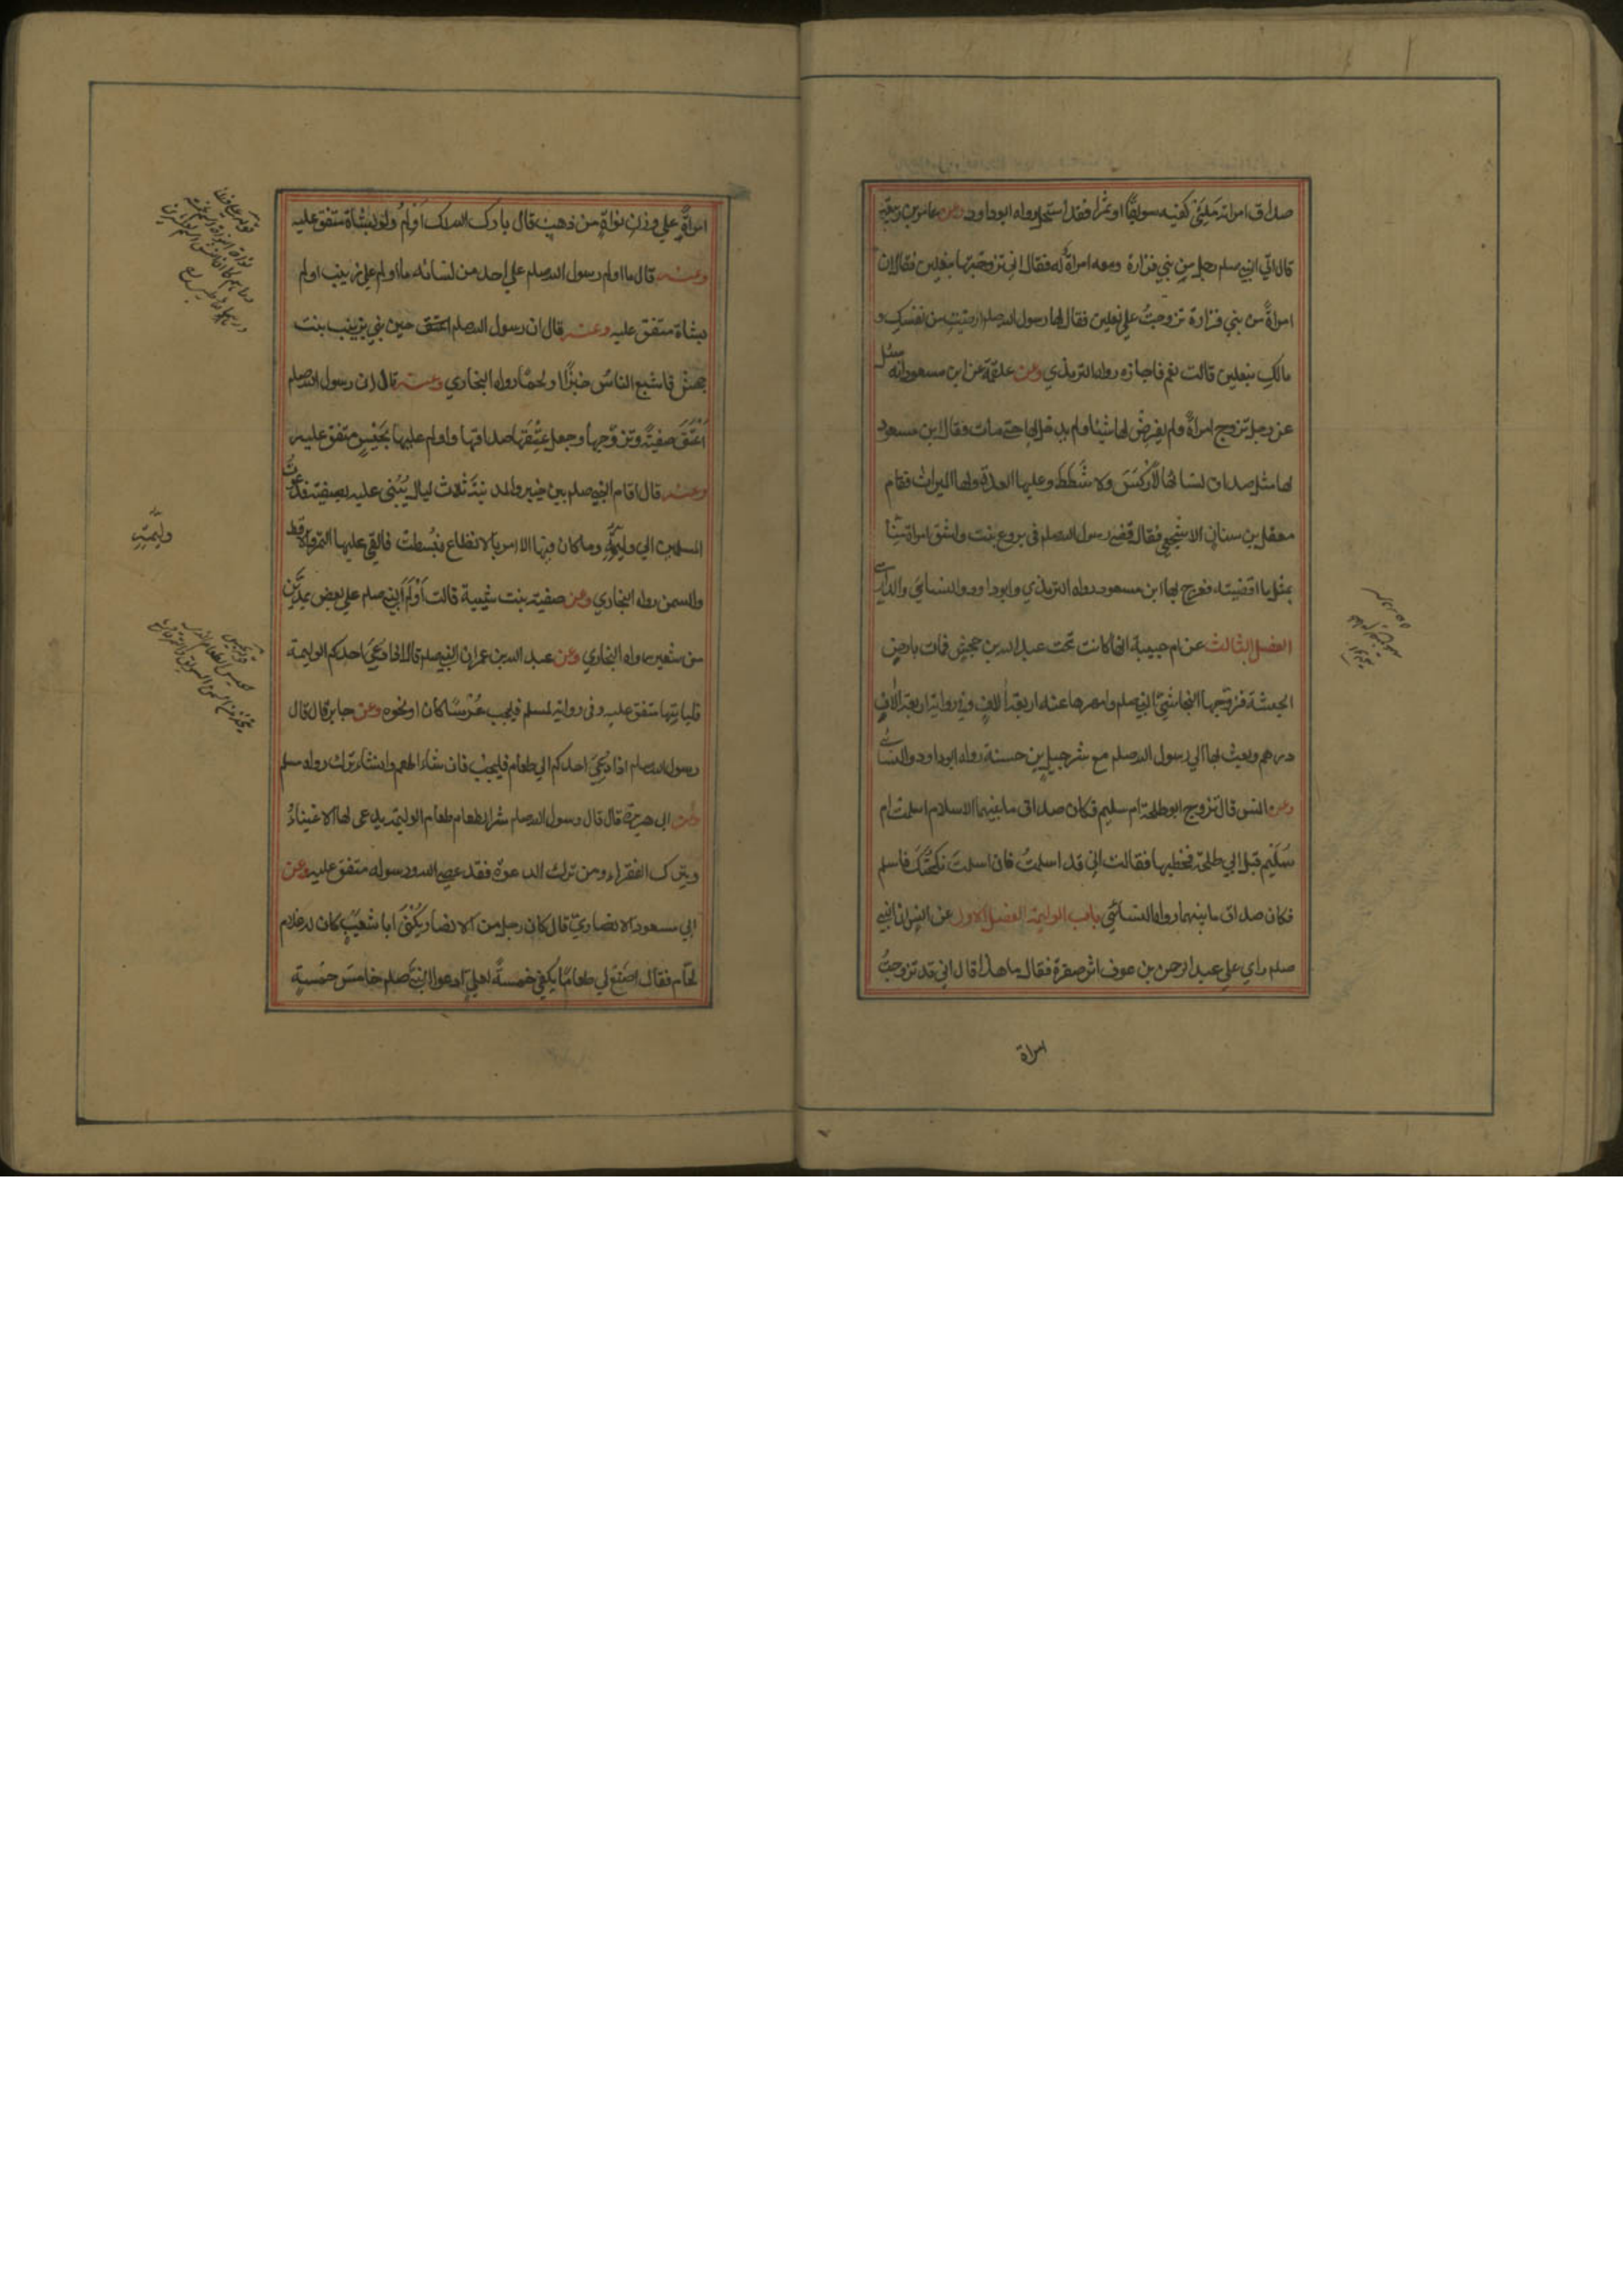 صداق امراته مَلِئَيْ كفيه سويقًا او تمرًا فقد استحل رواه ابوداود وعن عامر بن ربيعة
قال اتي النبي صلعم رجل من بني فزارة ومعه امراةٌ له فقال اني تزوجتها بنعلين فقال ان
امراةً من بني فزارة تزوجتُ علي نعلين فقال لها رسول الله صلعم ارضيتِ من نفسكِ و
مالكِ بنعلين قالت نعم فاجازه رواه الترمذي وعن علقمة عن ابن مسعود انه سئل
عن رجل تزوج امراةً ولم يفرِضْ لها شيئا ولم يدخل بها حتي مات فقال ابن مسعود
لها مثل صداق نسائها لاوَكْسَ ولا شَطَطَ وعليها العدة ولها الميراث فقام
معقل بن سنان الاشجعي فقال قضي رسول الله صلعم في بروع بنت واشق امراة منّا
بمثل ما قضيت ففرح بها ابن مسعود رواه الترمذي وابوداود والنسائي والدارمي
الفصل الثالث عن ام حبيبة انها كانت تحت عبد الله بن جحش فمات بارض
الحبشة فزوّجها النجاشيّ النبي صلعم وامهرها عنه اربعة الاف وفي رواية اربعة الاف
درهم وبعث بها الي رسول الله صلعم مع شرحبيل بن حسنة رواه ابوداود والنسائي
وعن انس قال تزوج ابوطلحة ام سليم فكان صداق ما بينهما الاسلام اسلمت ام
سُلَيْم قبل ابي طلحة فخطبها فقالت اني قد اسلمتُ فان اسلمتَ نكحتُكَ فاسلم
فكان صداق ما بينهما رواه النسائي باب الوليمة الفصل الاول عن انس ان النبي
صلعم راي علي عبد الرحمن بن عوف اثر صفرة فقال ما هذا قال اني قد تزوجتُ
امراة
امراةً علي وزن نواةٍ من ذهب قال بارك الله لك اَوْلِمْ ولو بشاة متفق عليه
وعنه قال ما اولم رسول الله صلعم علي احد من نسائه ما اولم علي زينب اولم
بشاة متفق عليه وعنه قال ان رسول الله صلعم حين بني بزينب بنت
جحش فاشبع الناسَ خبزًا ولحمًا رواه البخاري وعنه قال ان رسول الله صلعم
اَعْتَقَ صفيةَ وتزوّجها وجعل عِتْقَها صداقها واولم عليها بحَيْسٍ متفق عليه
وعنه قال اقام النبي صلعم بين خيبر والمدينة ثلاث ليال يُبْنى عليه بصفية فدعوتُ
المسلمين الي وليمته وما كان فيها الا امر بالانطاع فبُسطت فالقي عليها التمر والاقط
والسمن رواه البخاري وعن صفية بنت شيبة قالت اَوْلَمَ النبي صلعم علي بعض
من شعير رواه البخاري وعن عبد الله بن عمر ان النبي صلعم قال اذا دُعِيَ احدكم الوليمة
فلياتها متفق عليه وفي رواية لمسلم فليجب عُرْسًا كان او نحوه وعن جابر قال قال
رسول الله صلعم اذا دُعِيَ احدكم الي طعام فليجب فان شاء طعم وان شاء ترك رواه مسلم
وعن ابي هريرة قال قال رسول الله صلعم شر الطعام طعام الوليمة يدعى لها الاغنياءُ
ويترك الفقراء ومن ترك الدعوة فقد عصي الله ورسوله متفق عليه وعن
ابي مسعود الانصاري قال كان رجل من الانصار يُكْنَى ابا شعيب كان له غلام
لحّام فقال اصْنَعْ لي طعامًا يكفي خمسةً لعلي ادعو النبيَّ صلعم خامسَ خمسةٍ
وليمته